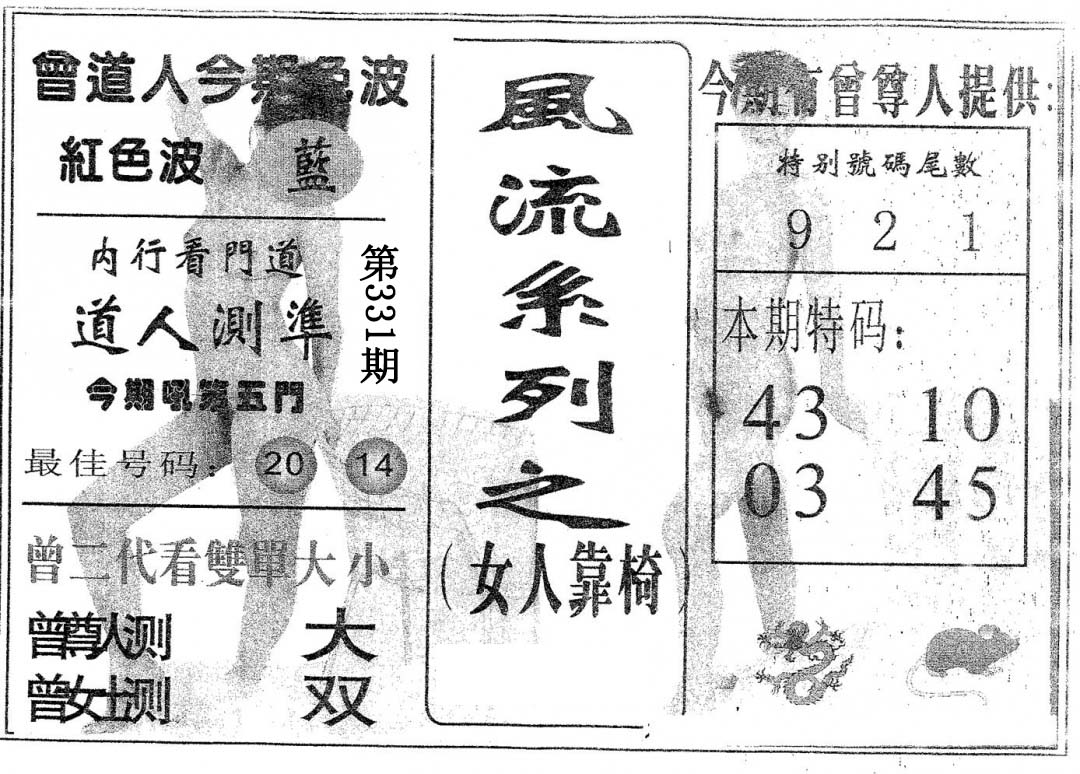 曾道人今期色波
紅色波 藍
内行看門道
道人測準
今期吼第五門
第331期
最佳号码：20 14
曾二代看雙單大小
曾尊人测 大
曾女士测 双
風流系列之
（女人靠椅）
今期有曾尊人提供：
特别號碼尾數
9 2 1
本期特码：
43 10
03 45